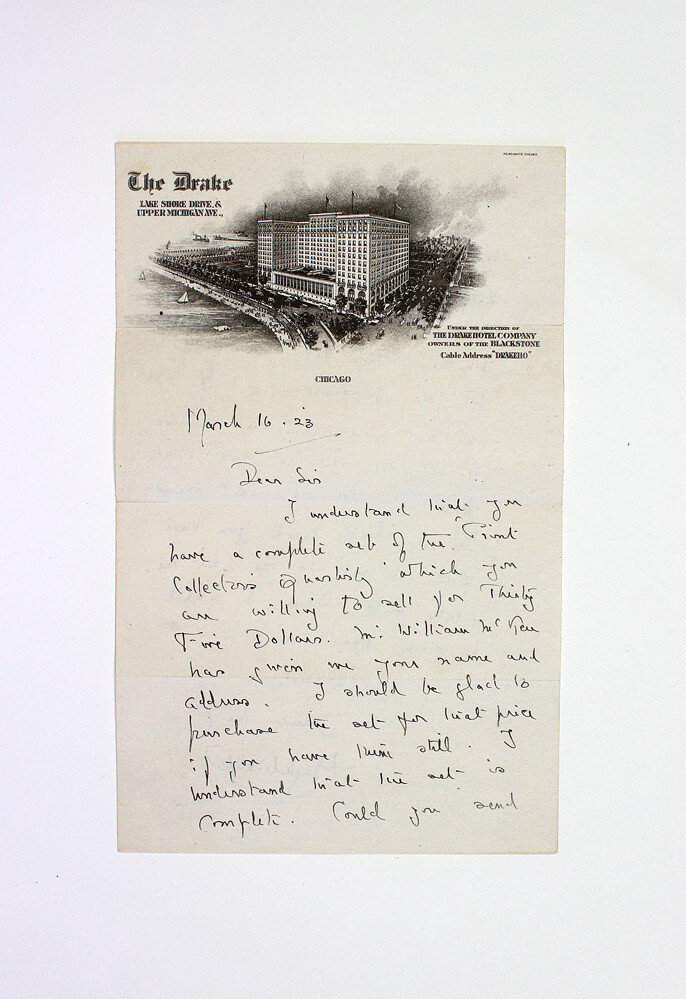 The Drake
LAKE SHORE DRIVE, &
UPPER MICHIGAN AVE.,
UNDER THE DIRECTION OF
THE DRAKE HOTEL COMPANY
OWNERS OF THE BLACKSTONE
Cable Address "DRAKEHO"
CHICAGO
March 16 . 23
Dear Sir
I understand that you
have a complete set of the "Print
Collectors Quarterly" which you
are willing to sell for Thirty
Five Dollars. Mr William McKee
has given me your name and
address. I should be glad to
purchase the set for that price
if you have them still. I
understand that the set is
complete. Could you send